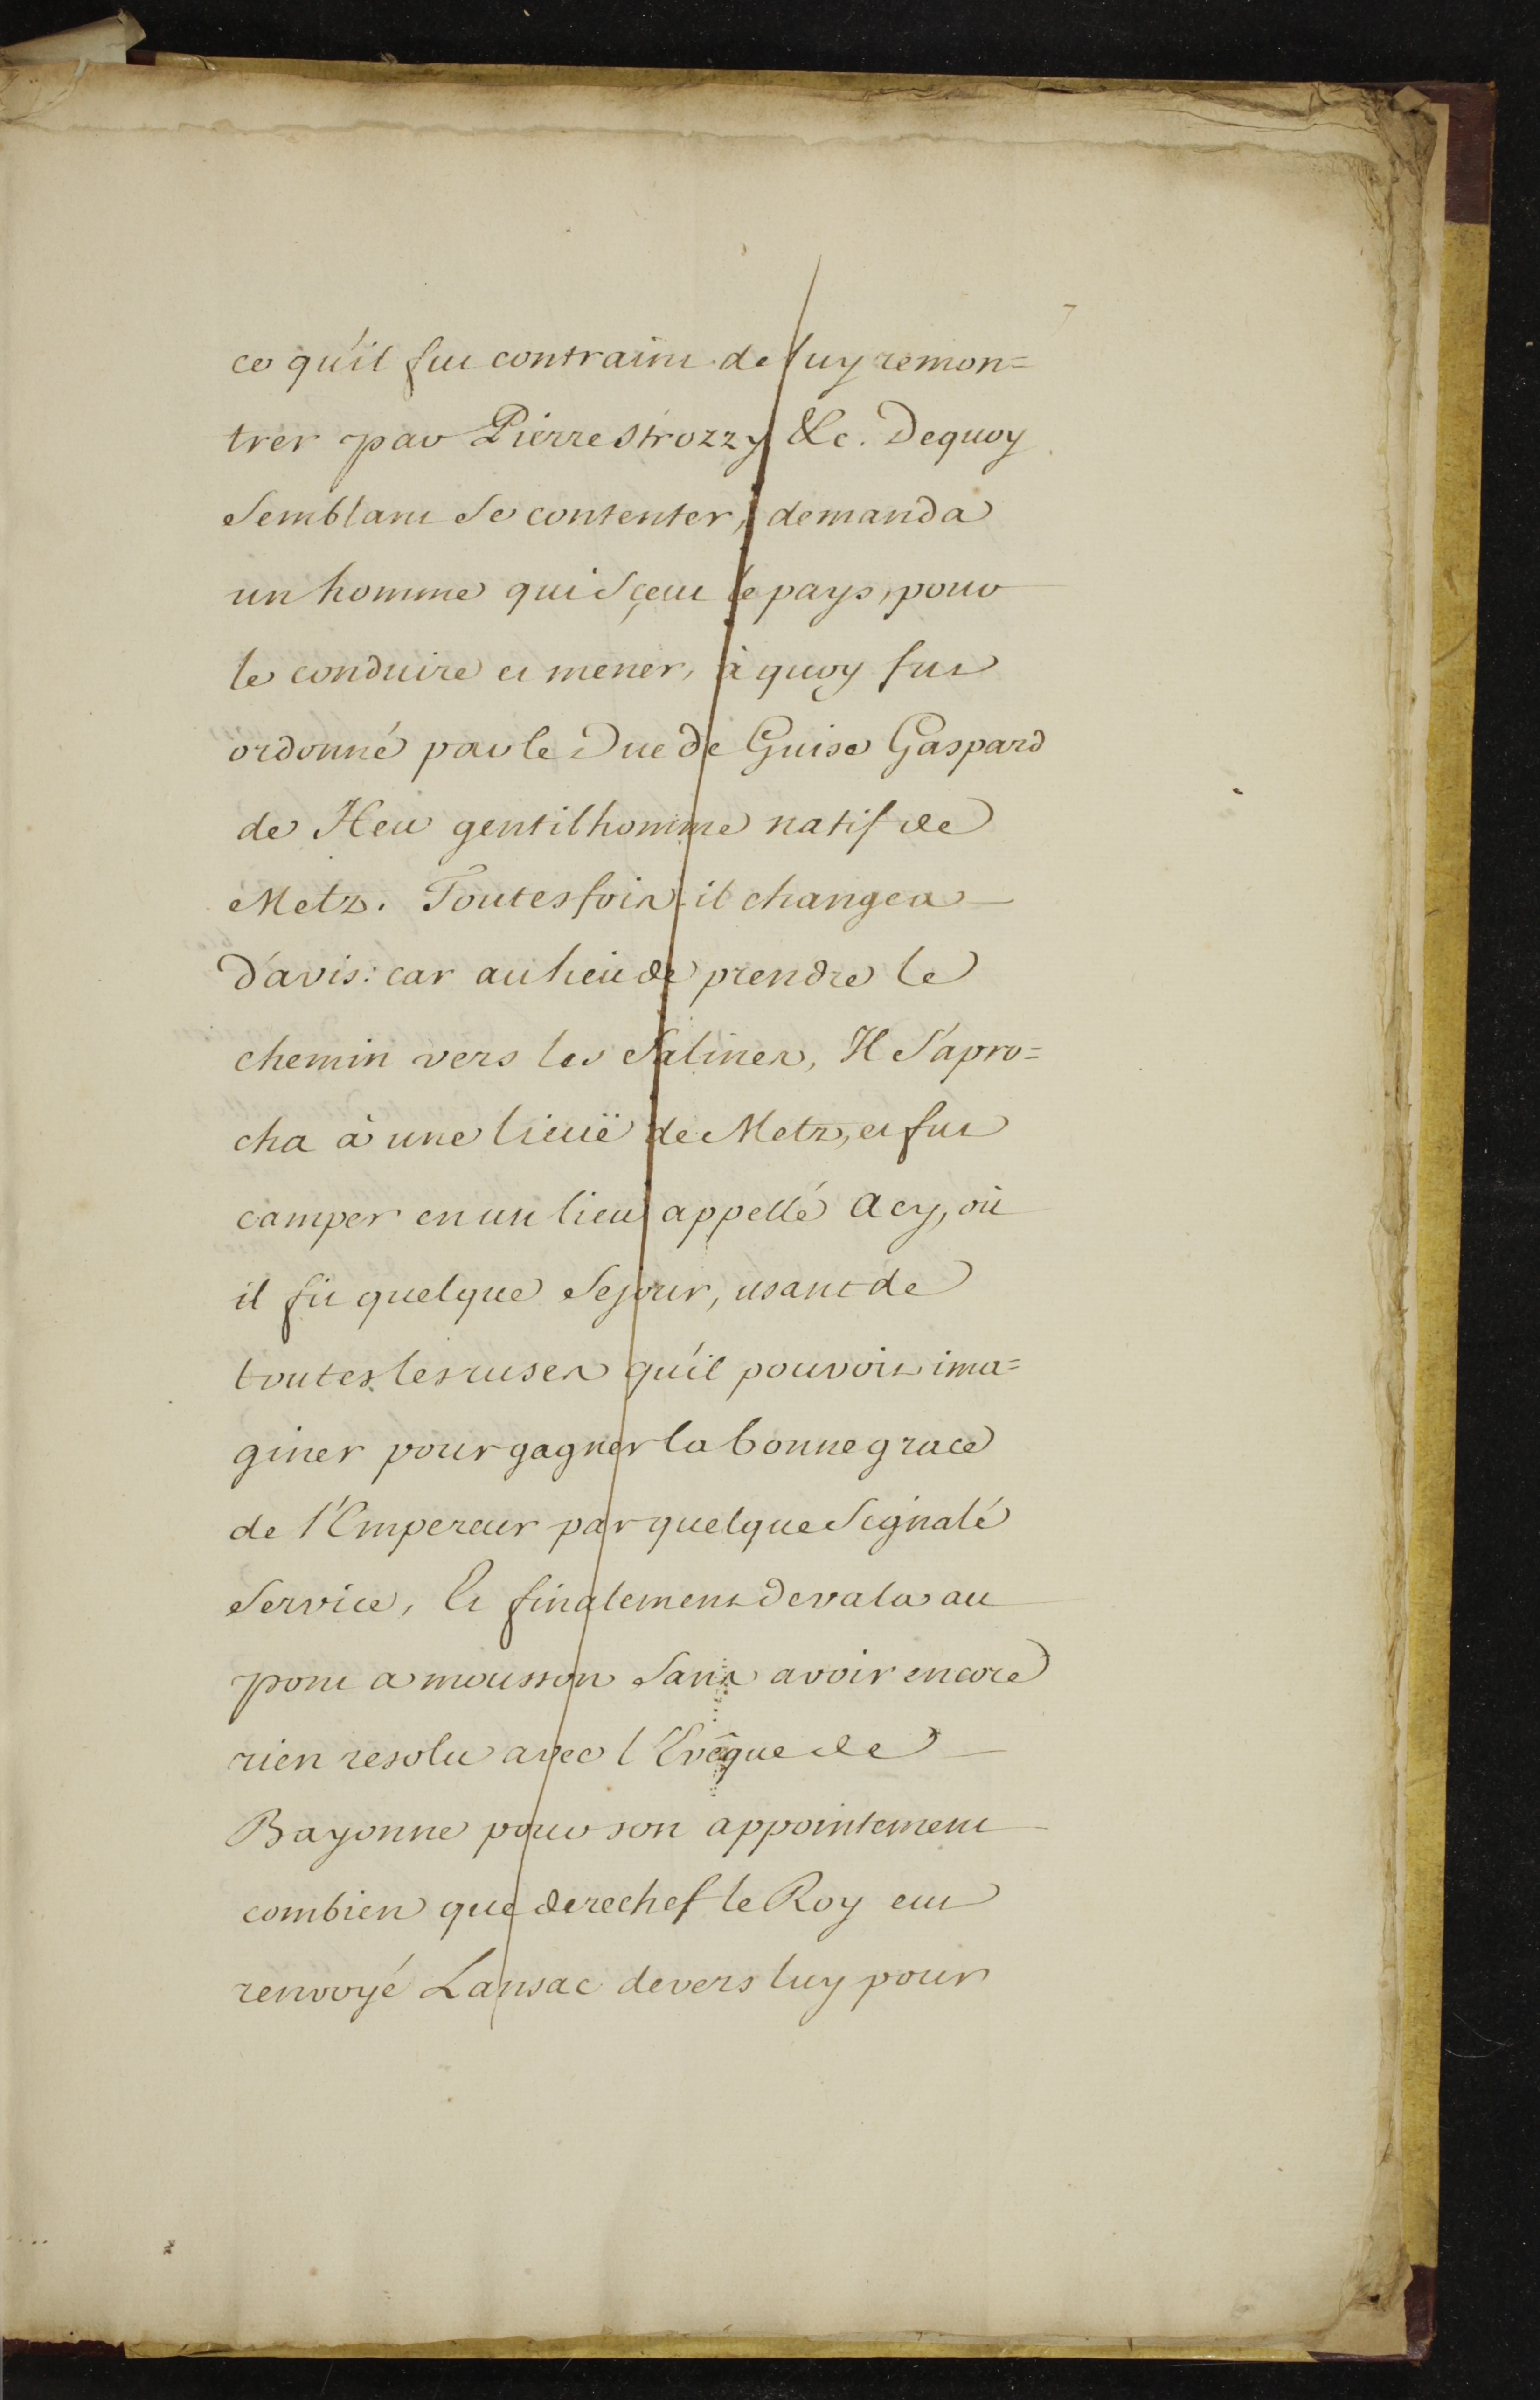 7
ce qu'il fut contraint de luy remon=
trer par Pierre Strozzy &c. Dequoy
Semblant Se contenter, demanda
un homme qui Sçeut le pays, pour
le conduire et mener, à quoy fut
ordonné par le Duc de Guise Gaspard
de Heu gentilhomme natif de
Metz. Toutesfois il changea
d'avis: car au lieu de prendre le
chemin vers les Salines, Il S'apro=
cha à une lieuë de Metz, et fut
camper en un lieu appellé Acy, où
il fit quelque Sejour, usant de
toutes les ruses qu'il pouvoit ima=
giner pour gagner la bonne grace
de l'Empereur par quelque Signalé
Service, Et finalement devala au
pont a mousson Sans avoir encore
rien resolu avec l'Evêque de
Bayonne pour son appointement
combien que derechef le Roy eut
renvoyé Lansac devers luy pour